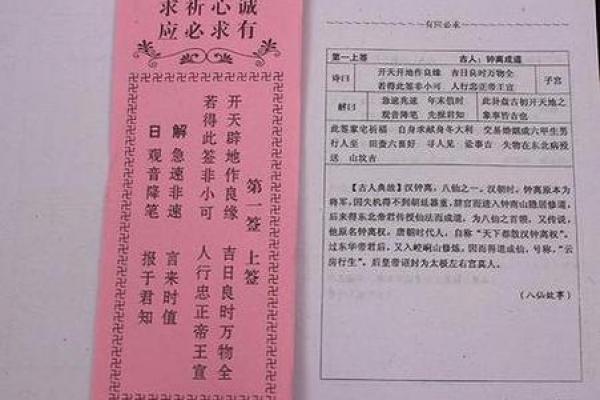 诚心祈求
有求必应
第一签 上签
开天辟地作良缘 吉日良时万物全
若得此签非小可 人行忠正帝王宣
解 急速非速 言来时值
日 观音降笔 报于君知
有应必求
第一上签 古人：钟离成道
诗曰 开天开地作良缘 吉日良时万物全 子宫
若得此签非小可 人行忠正帝王宣
解曰 急速兆速 年末值时 此卦盘古初开天地之
观音降笔 先报君知 象事皆吉也
此签家宅祈福 自身求献身冬大利 交易婚姻成六甲生男
行人至 田蚕六畜好 寻人见 讼事吉 失物在东北病
送 山坟吉
【古人典故】汉钟离，八仙之一。汉朝时，钟离原本为
将军，因失机得不到朝廷器重，辞官而进入钟南山隐居修道，
后来得东北帝君传授仙法而成道，为八仙之首领，又传说，
他原名钟离权，唐朝时代人，自称“天下都散汉钟离权”。
过东华帝君后，又入崆峒山修炼，因而得道成仙，号称，“云
房行生”。后皇帝诏封为太极左右宫真人。
（八仙故事）